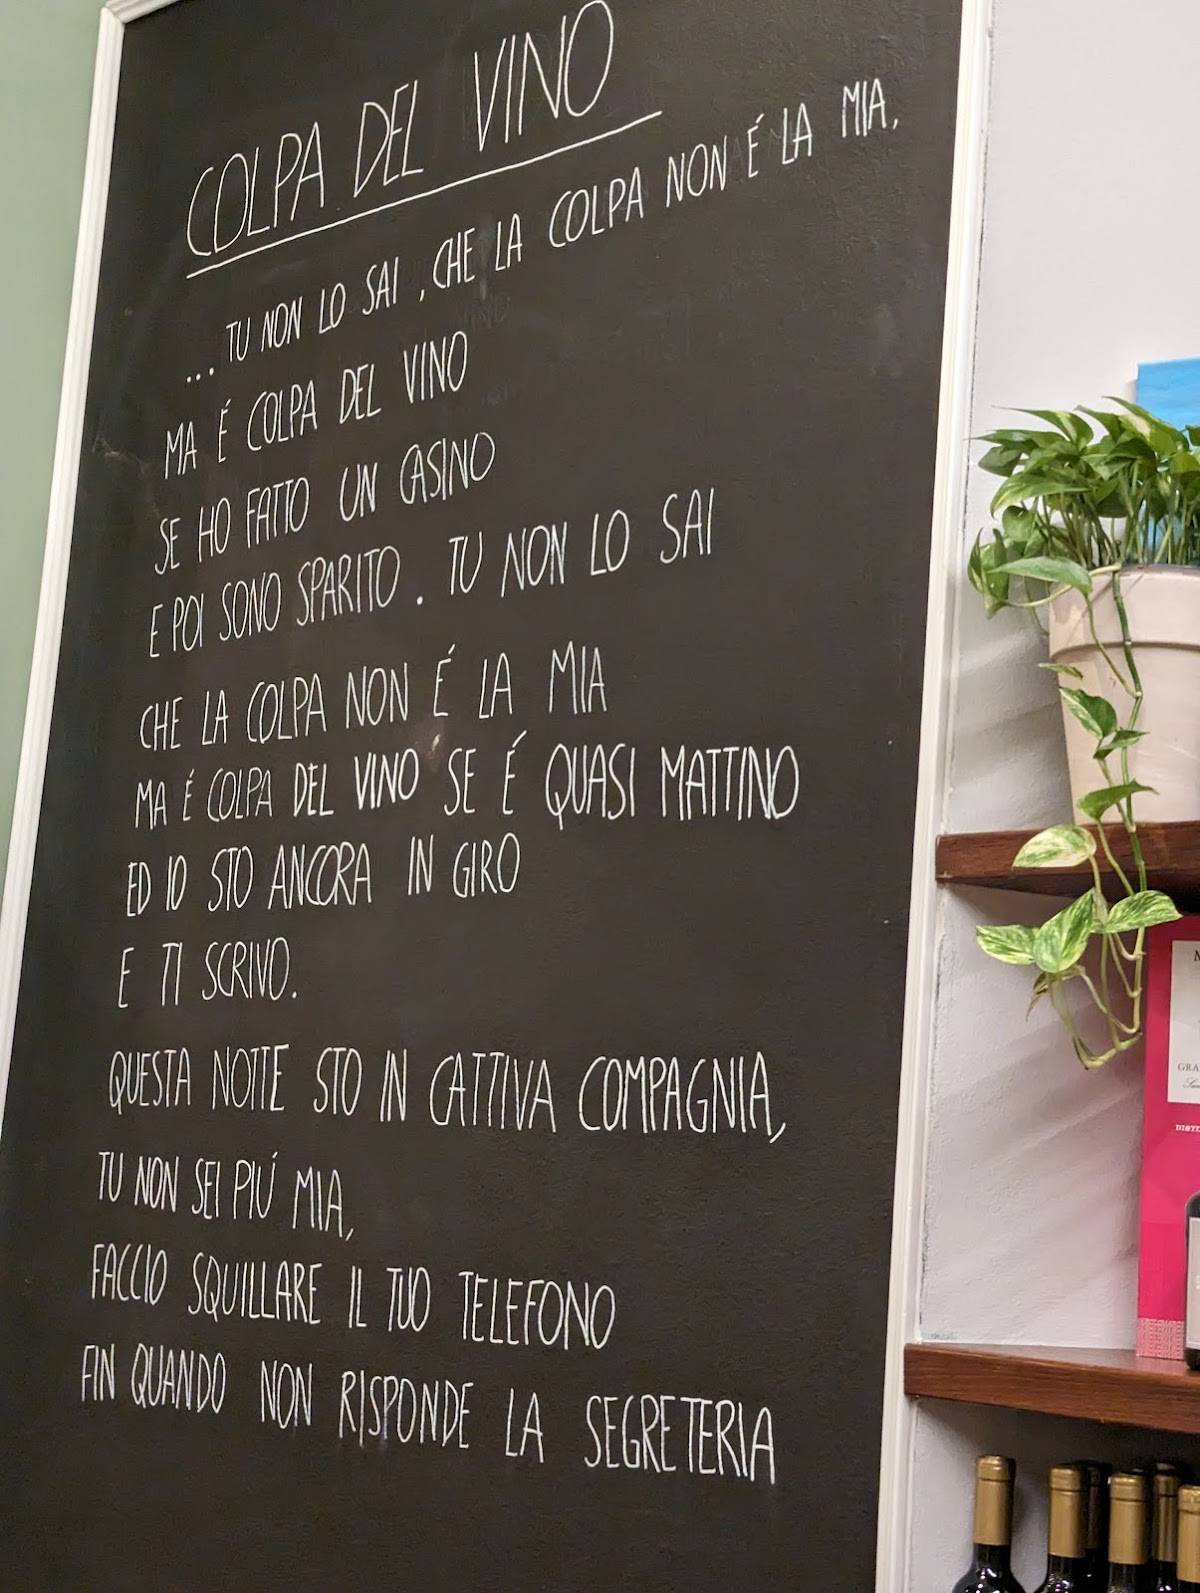 COLPA DEL VINO
... TU NON LO SAI, CHE LA COLPA NON É LA MIA,
MA É COLPA DEL VINO
SE HO FATTO UN CASINO
E POI SONO SPARITO. TU NON LO SAI
CHE LA COLPA NON É LA MIA
MA É COLPA DEL VINO SE É QUASI MATTINO
ED IO STO ANCORA IN GIRO
E TI SCRIVO.
QUESTA NOTTE STO IN CATTIVA COMPAGNIA,
TU NON SEI PIÚ MIA,
FACCIO SQUILLARE IL TUO TELEFONO
FIN QUANDO NON RISPONDE LA SEGRETERIA